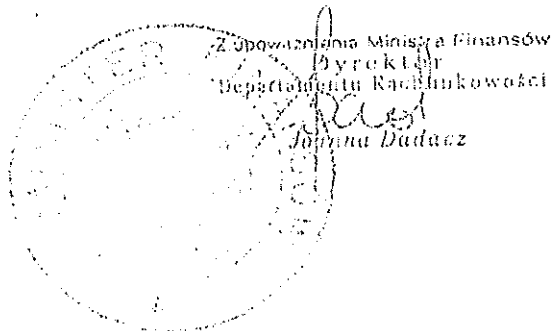 Z upoważnienia Ministra Finansów
Dyrektor
Departamentu Rachunkowości
Joanna Dadacz